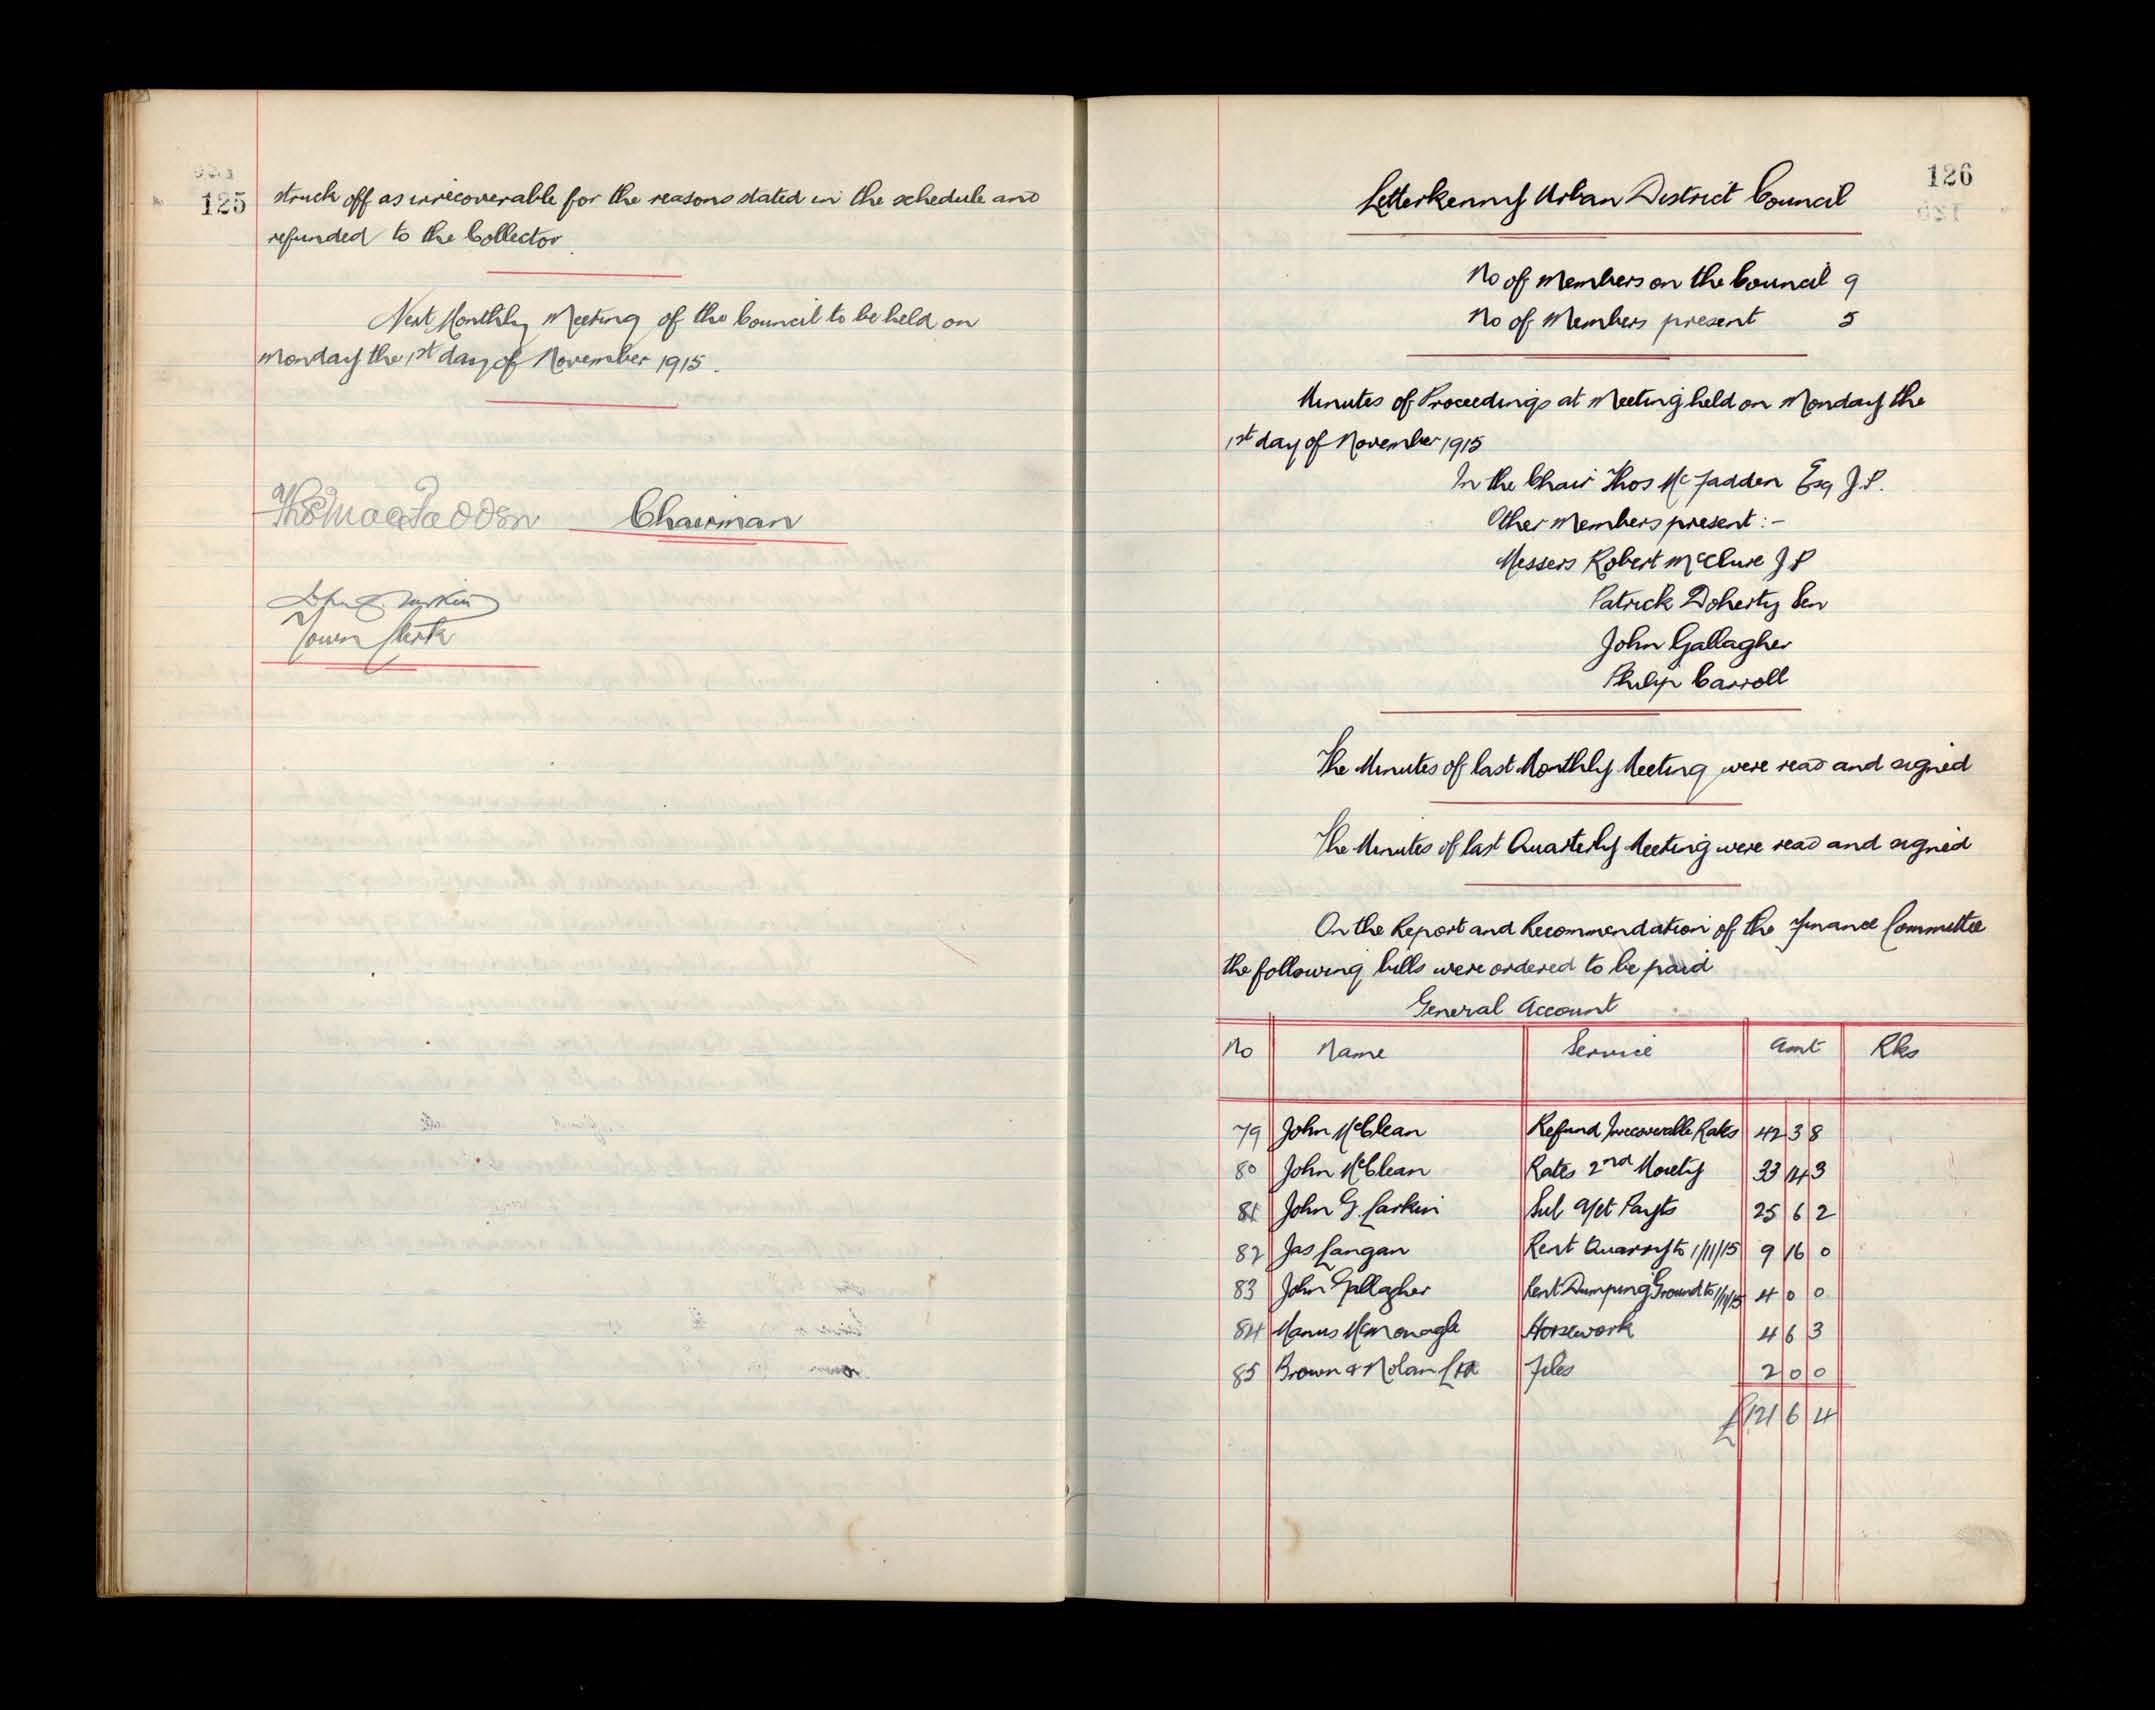 125
struck off as irrecoverable for the reasons stated in the schedule and
refunded to the Collector.
Next Monthly Meeting of the Council to be held on
Monday the 1st day of November 1915.
Thos MacFadden Chairman
John G Larkin
Town Clerk
126
Letterkenny Urban District Council
No of Members on the Council 9
No of Members present 5
Minutes of Proceedings at Meeting held on Monday the
1st day of November 1915
In the Chair Thos McFadden Esq J.P.
Other Members present :-
Messers Robert McClure J P
Patrick Doherty Sen
John Gallagher
Philip Carroll
The Minutes of last Monthly Meeting were read and signed
The Minutes of last Quarterly Meeting were read and signed
On the Report and Recommendation of the Finance Committee
the following bills were ordered to be paid
General Account
No Name Service Amt Rks
79 John McClean Refund Irrecoverable Rates 42 3 8
80 John McClean Rates 2nd Moiety 33 14 3
81 John G. Larkin Sub a/ct Payts 25 6 2
82 Jas Langan Rent Quarry to 1/11/15 9 16 0
83 John Gallagher Rent Dumping Ground to 1/11/15 4 0 0
84 Manus McMonagle Horsework 4 6 3
85 Brown & Nolan Ltd Files 2 0 0
£121 6 4